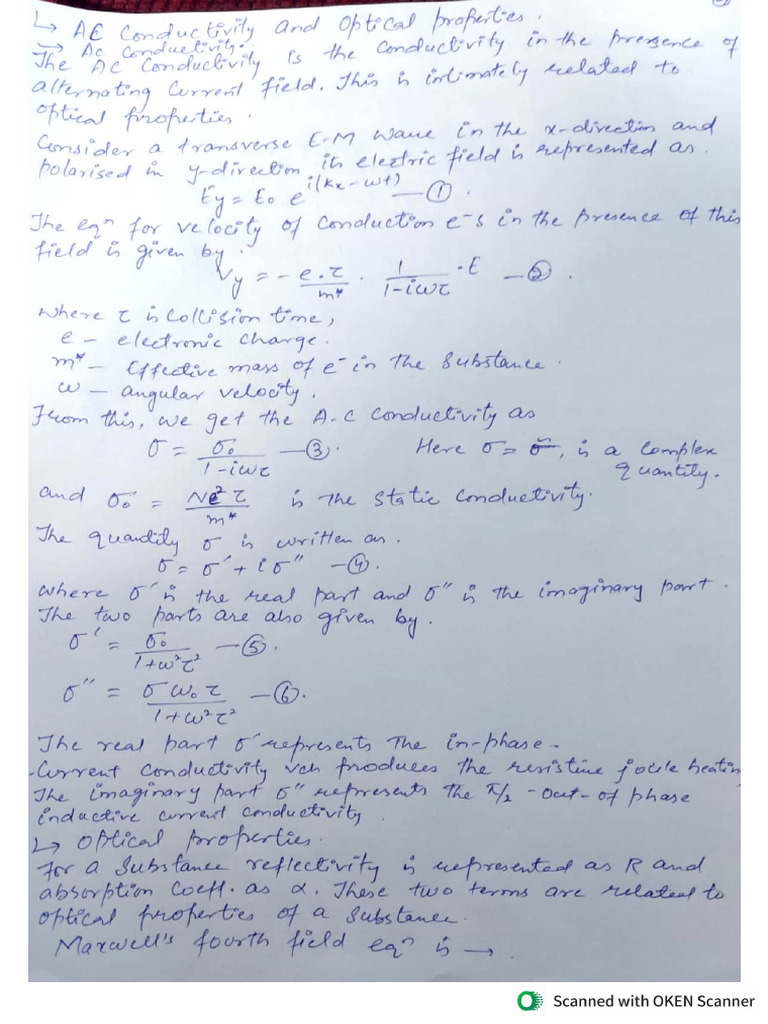 ↳ AC Conductivity and Optical properties.
→ AC Conductivity:
The AC Conductivity is the conductivity in the presence of
alternating current field. This is intimately related to
optical properties.
Consider a transverse E-M wave in the x-direction and
polarised in y-direction its electric field is represented as.
Ey = E₀ e^i(kx-ωt) — ①.
The eqⁿ for velocity of conduction e⁻s in the presence of this
field is given by.
Vy = - e.τ/m* . 1/1-iωτ .E — ②.
where τ is collision time,
e - electronic charge.
m* - Effective mass of e⁻ in the substance.
ω - angular velocity.
From this, we get the A.C conductivity as
σ = σ₀/1-iωτ — ③. Here σ = σ̃, is a complex
quantity.
and σ₀ = Ne²τ/m* is the static conductivity.
The quantity σ is written as.
σ = σ' + iσ" — ④.
where σ' is the real part and σ" is the imaginary part.
The two parts are also given by.
σ' = σ₀/1+ω²τ² — ⑤.
σ" = σω₀τ/1+ω²τ² — ⑥.
The real part σ' represents the in-phase-
-Current conductivity vch produces the resistive joule heating
The imaginary part σ" represents the π/2 -out-of phase
inductive current conductivity
↳ Optical properties.
For a substance reflectivity is represented as R and
absorption coeff. as α. These two terms are related to
optical properties of a substance.
Maxwell's fourth field eqⁿ is →.
Scanned with OKEN Scanner